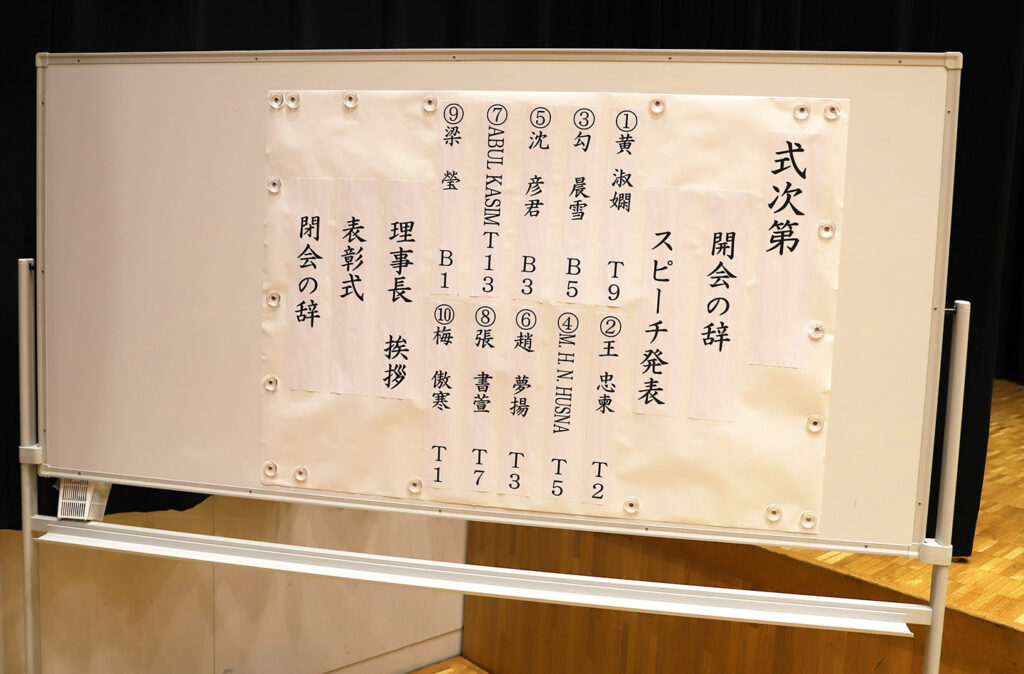 式次第
開会の辞
スピーチ発表
①黄 淑嫻 T9
②王 忠東 T2
③勾 晨雪 B5
④M. H. N. HUSNA T5
⑤沈 彦君 B3
⑥趙 夢揚 T3
⑦ABUL KASIM T13
⑧張 書萱 T7
⑨梁 瑩 B1
⑩梅 傲寒 T1
理事長 挨拶
表彰式
閉会の辞